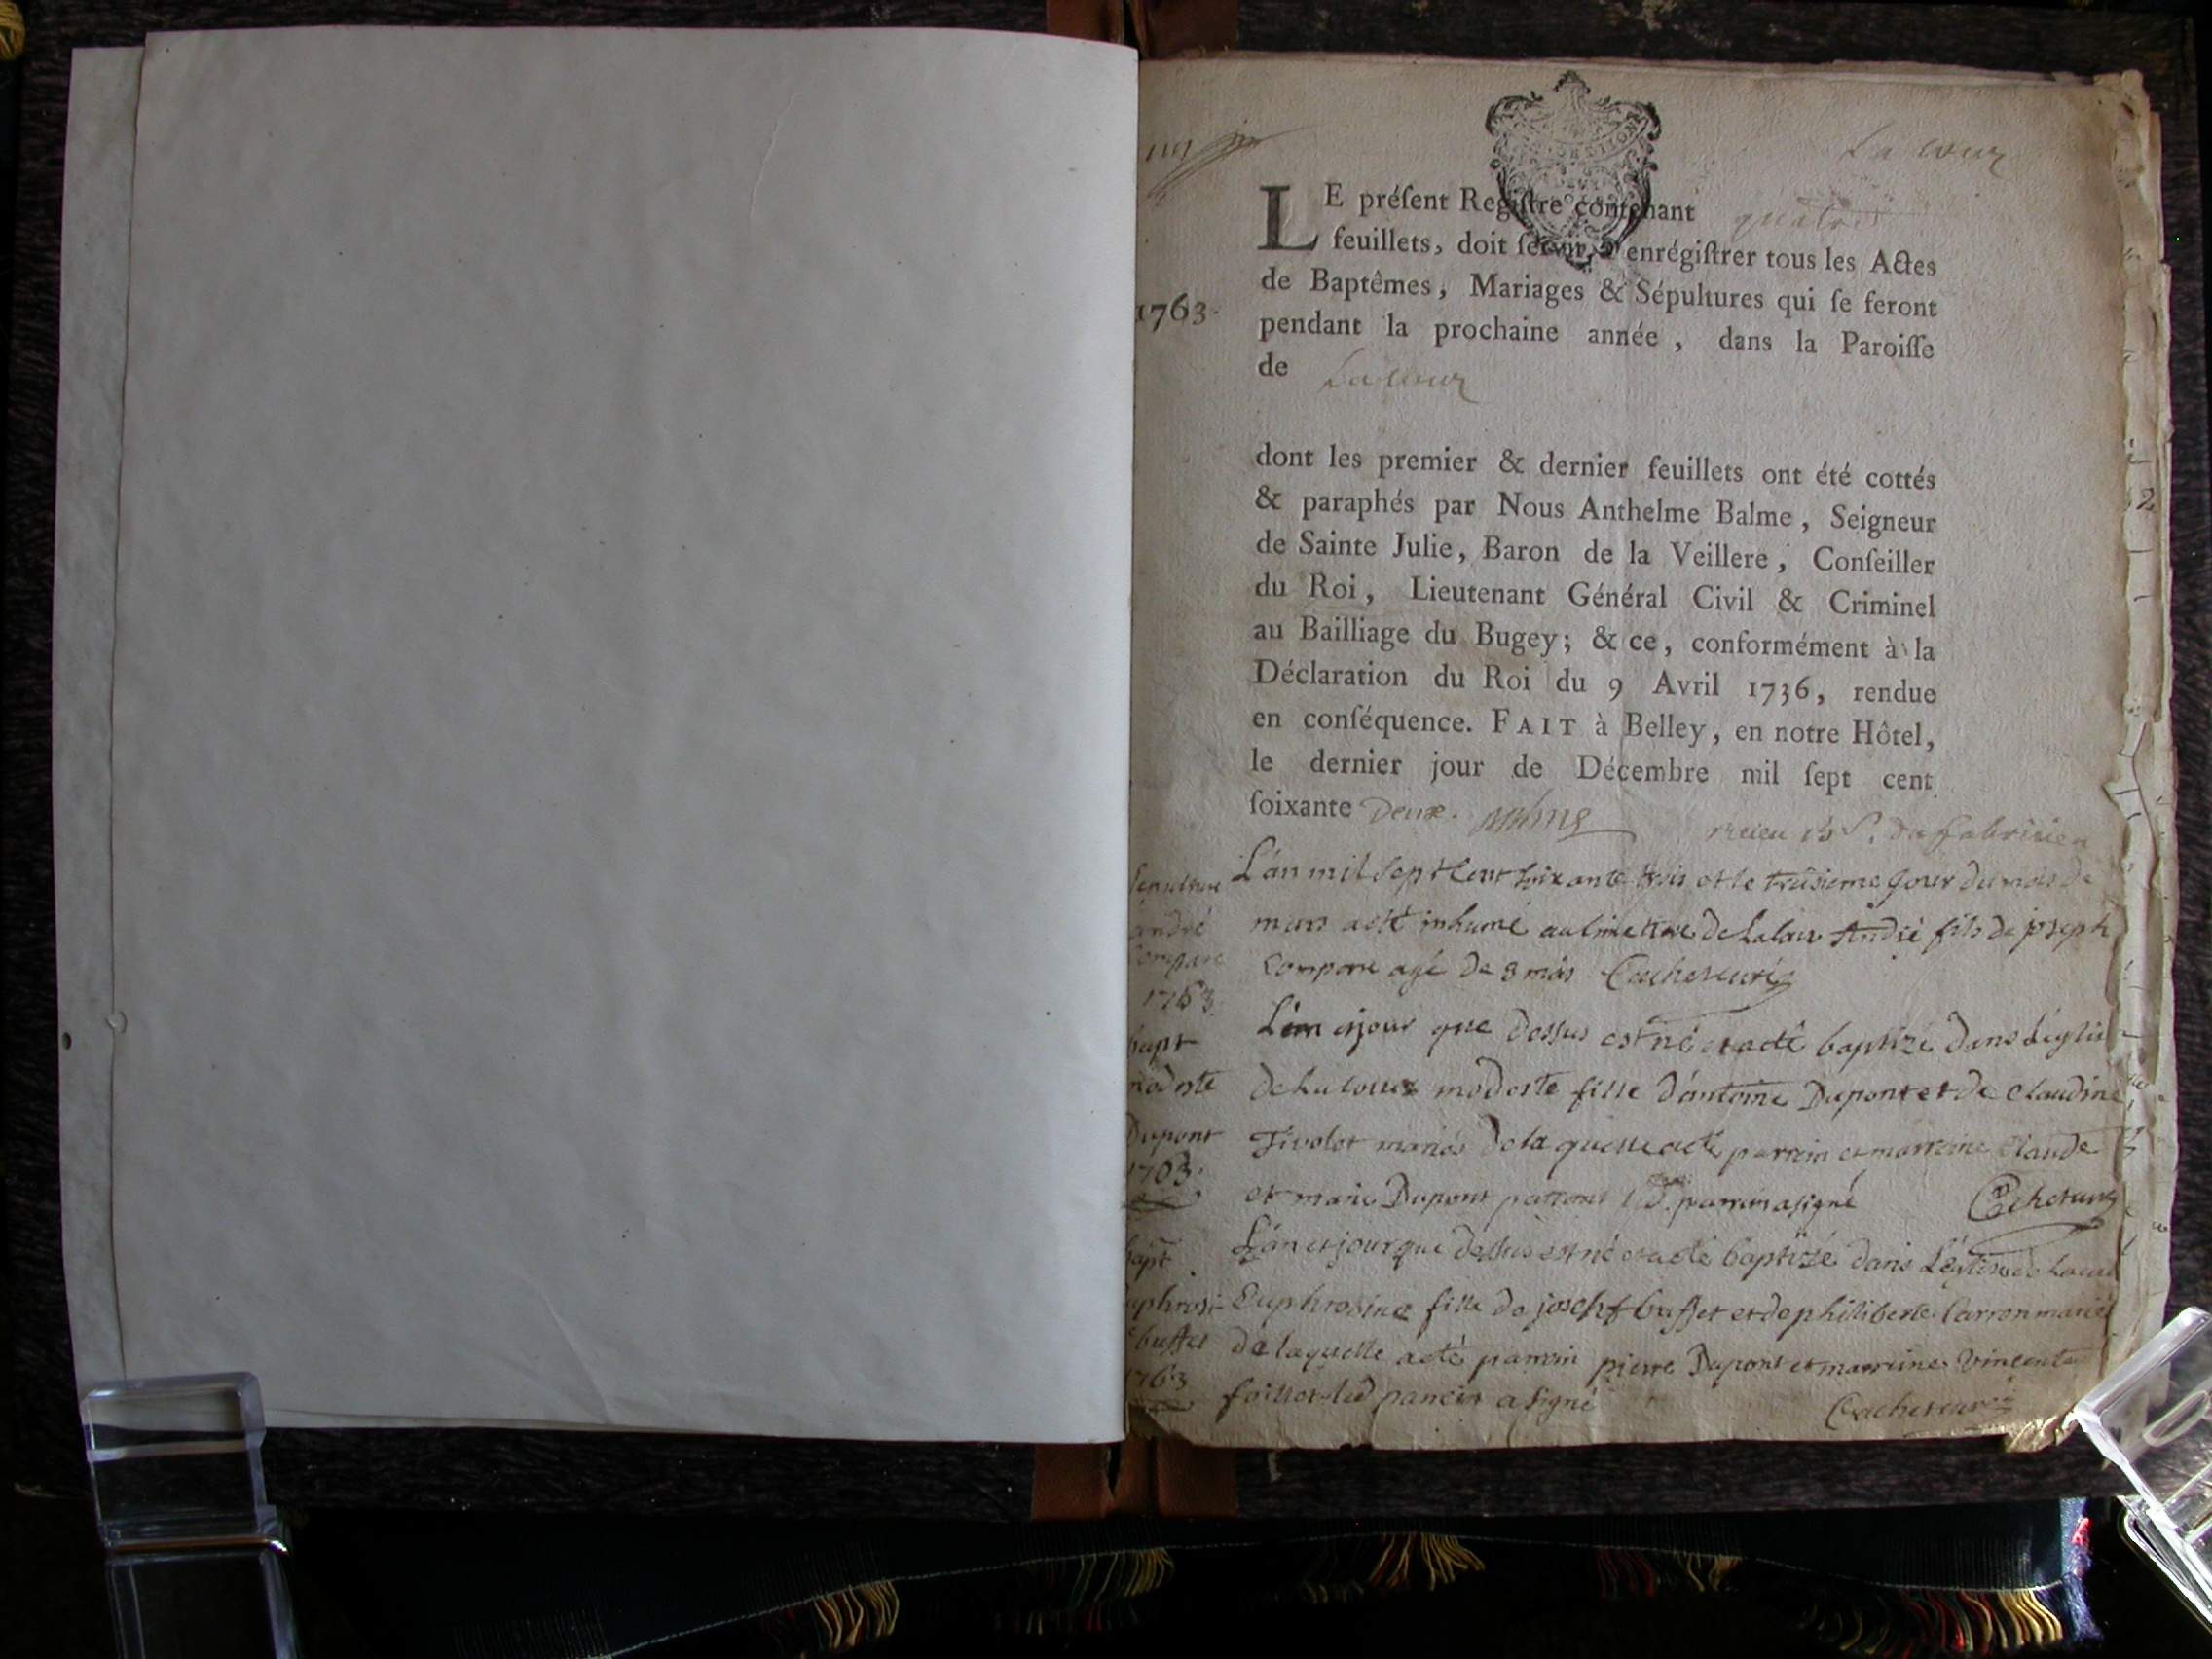 La cour
LE préſent Regiſtre contenant quatre
feuillets, doit ſervir à enrégiſtrer tous les Actes
de Baptêmes, Mariages & Sépultures qui ſe feront
1763.
pendant la prochaine année, dans la Paroiſſe
de Lacour
dont les premier & dernier feuillets ont été cottés
& paraphés par Nous Anthelme Balme, Seigneur
de Sainte Julie, Baron de la Veillere, Conſeiller
du Roi, Lieutenant Général Civil & Criminel
au Bailliage du Bugey; & ce, conformément à la
Déclaration du Roi du 9 Avril 1736, rendue
en conſéquence. FAIT à Belley, en notre Hôtel,
le dernier jour de Décembre mil ſept cent
ſoixante Deux.
sepulture
andré
compare
1763
L'an mil sept cent soixante trois et le troisieme jour du mois de
mars a eté inhumé au cimetiere de André fils de joseph
compare agé de 8 mois
bapt
modeste
Dupont
1763.
L'an et jour que dessus est né et a eté baptizé dans L'églis
de modeste fille d'antoine Dupont et de claudine
Tivolet mariés de la quelle a eté parrein et marreine claude
et marie Dupont parrein a signé
bapt
buffet
1763
L'an et jour que dessus est né et a eté baptizé dans L'église de
Euphrosine fille de joseph buffet et de philiberte Carron mariés
de laquelle a eté parrein pierre Dupont et marreine vincente
led parrein a signé